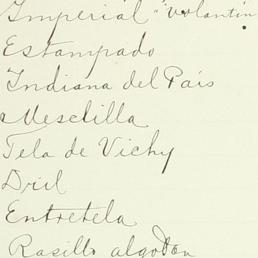 Imperial "Volantin
Estampado
Indiana del País
Mesclilla
Tela de Vichy
Dril
Entretela
Rasillo algodon